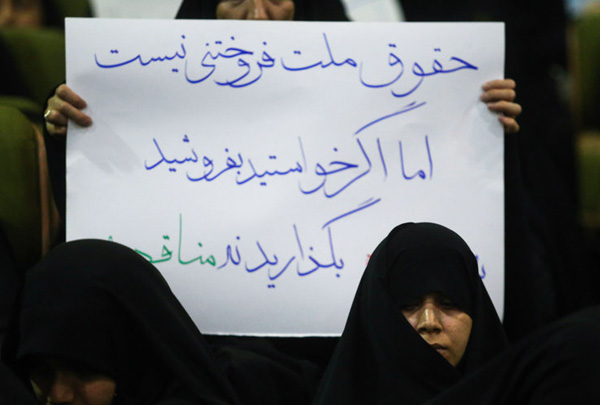 حقوق ملت فروختنی نیست
اما اگر خواستید بفروشید
بگذارید نه مناقصه